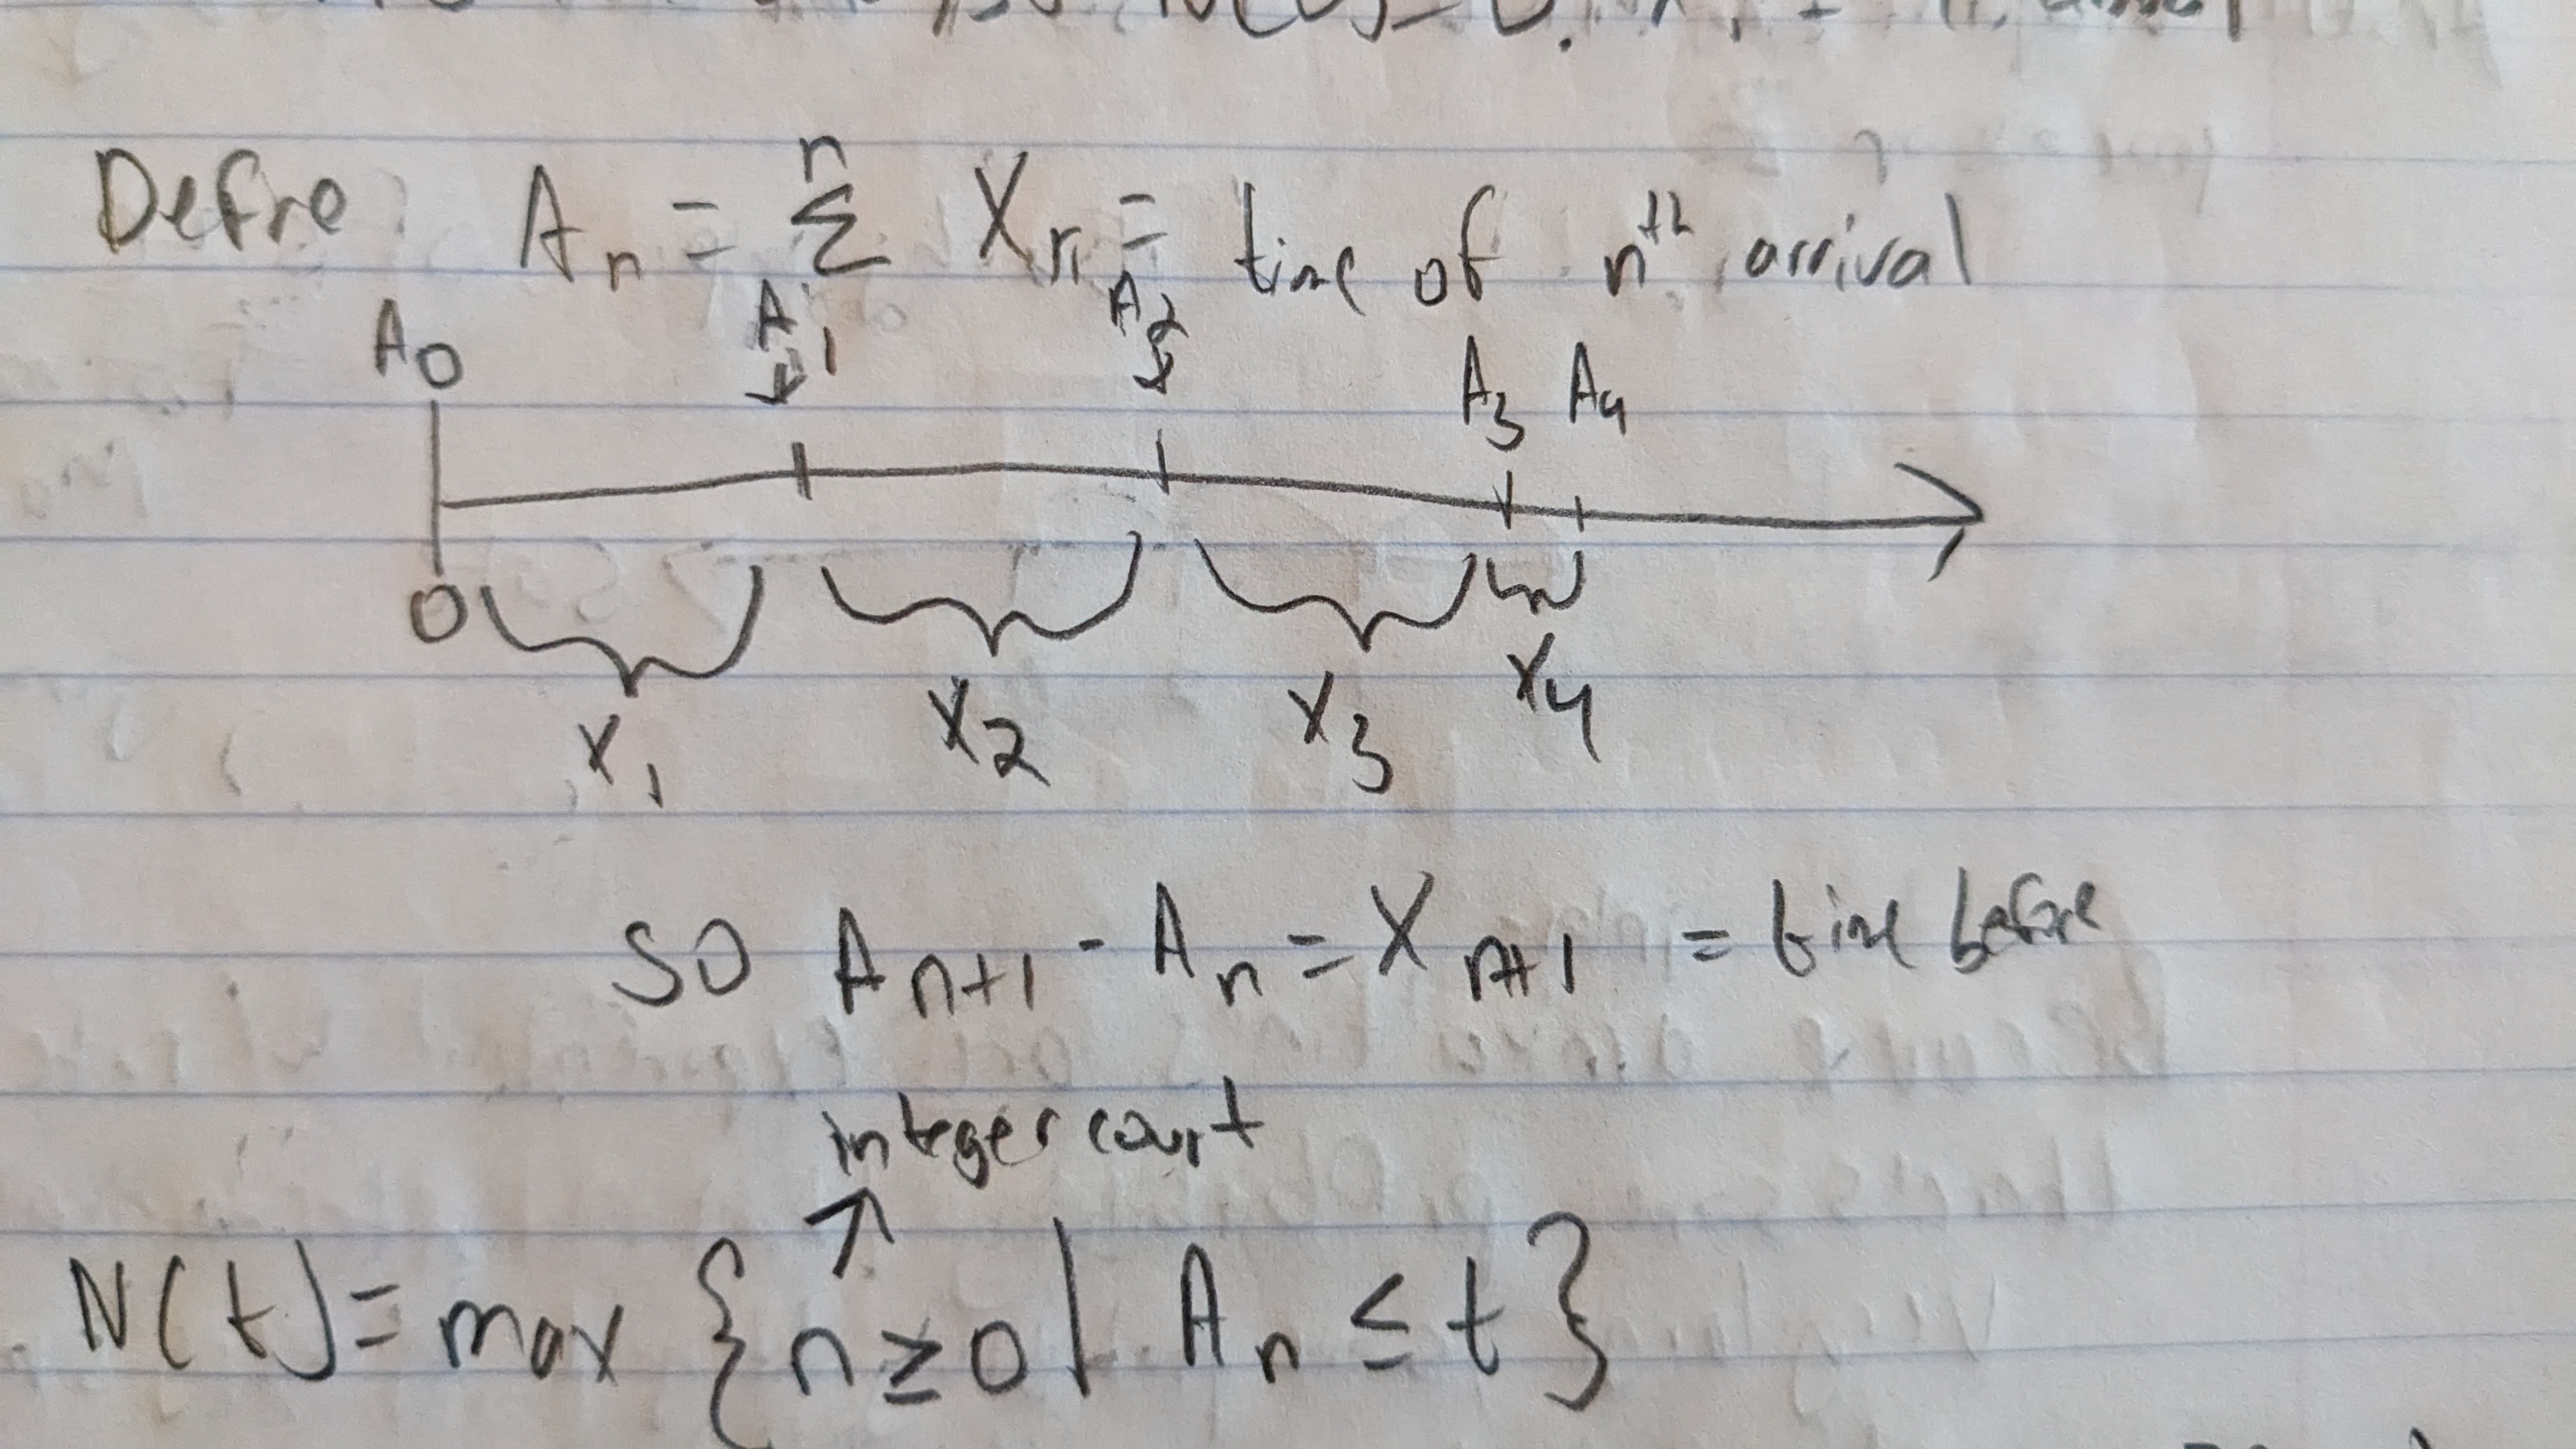 N(0)=0.
Define Aₙ = Σⁿ Xₙ = time of nᵗʰ arrival
A₀ A₁ A₂ A₃ A₄
0
X₁ X₂ X₃ X₄
SO Aₙ₊₁ - Aₙ = Xₙ₊₁ = time before
integer count
N(t) = max {n ≥ 0 | Aₙ ≤ t}